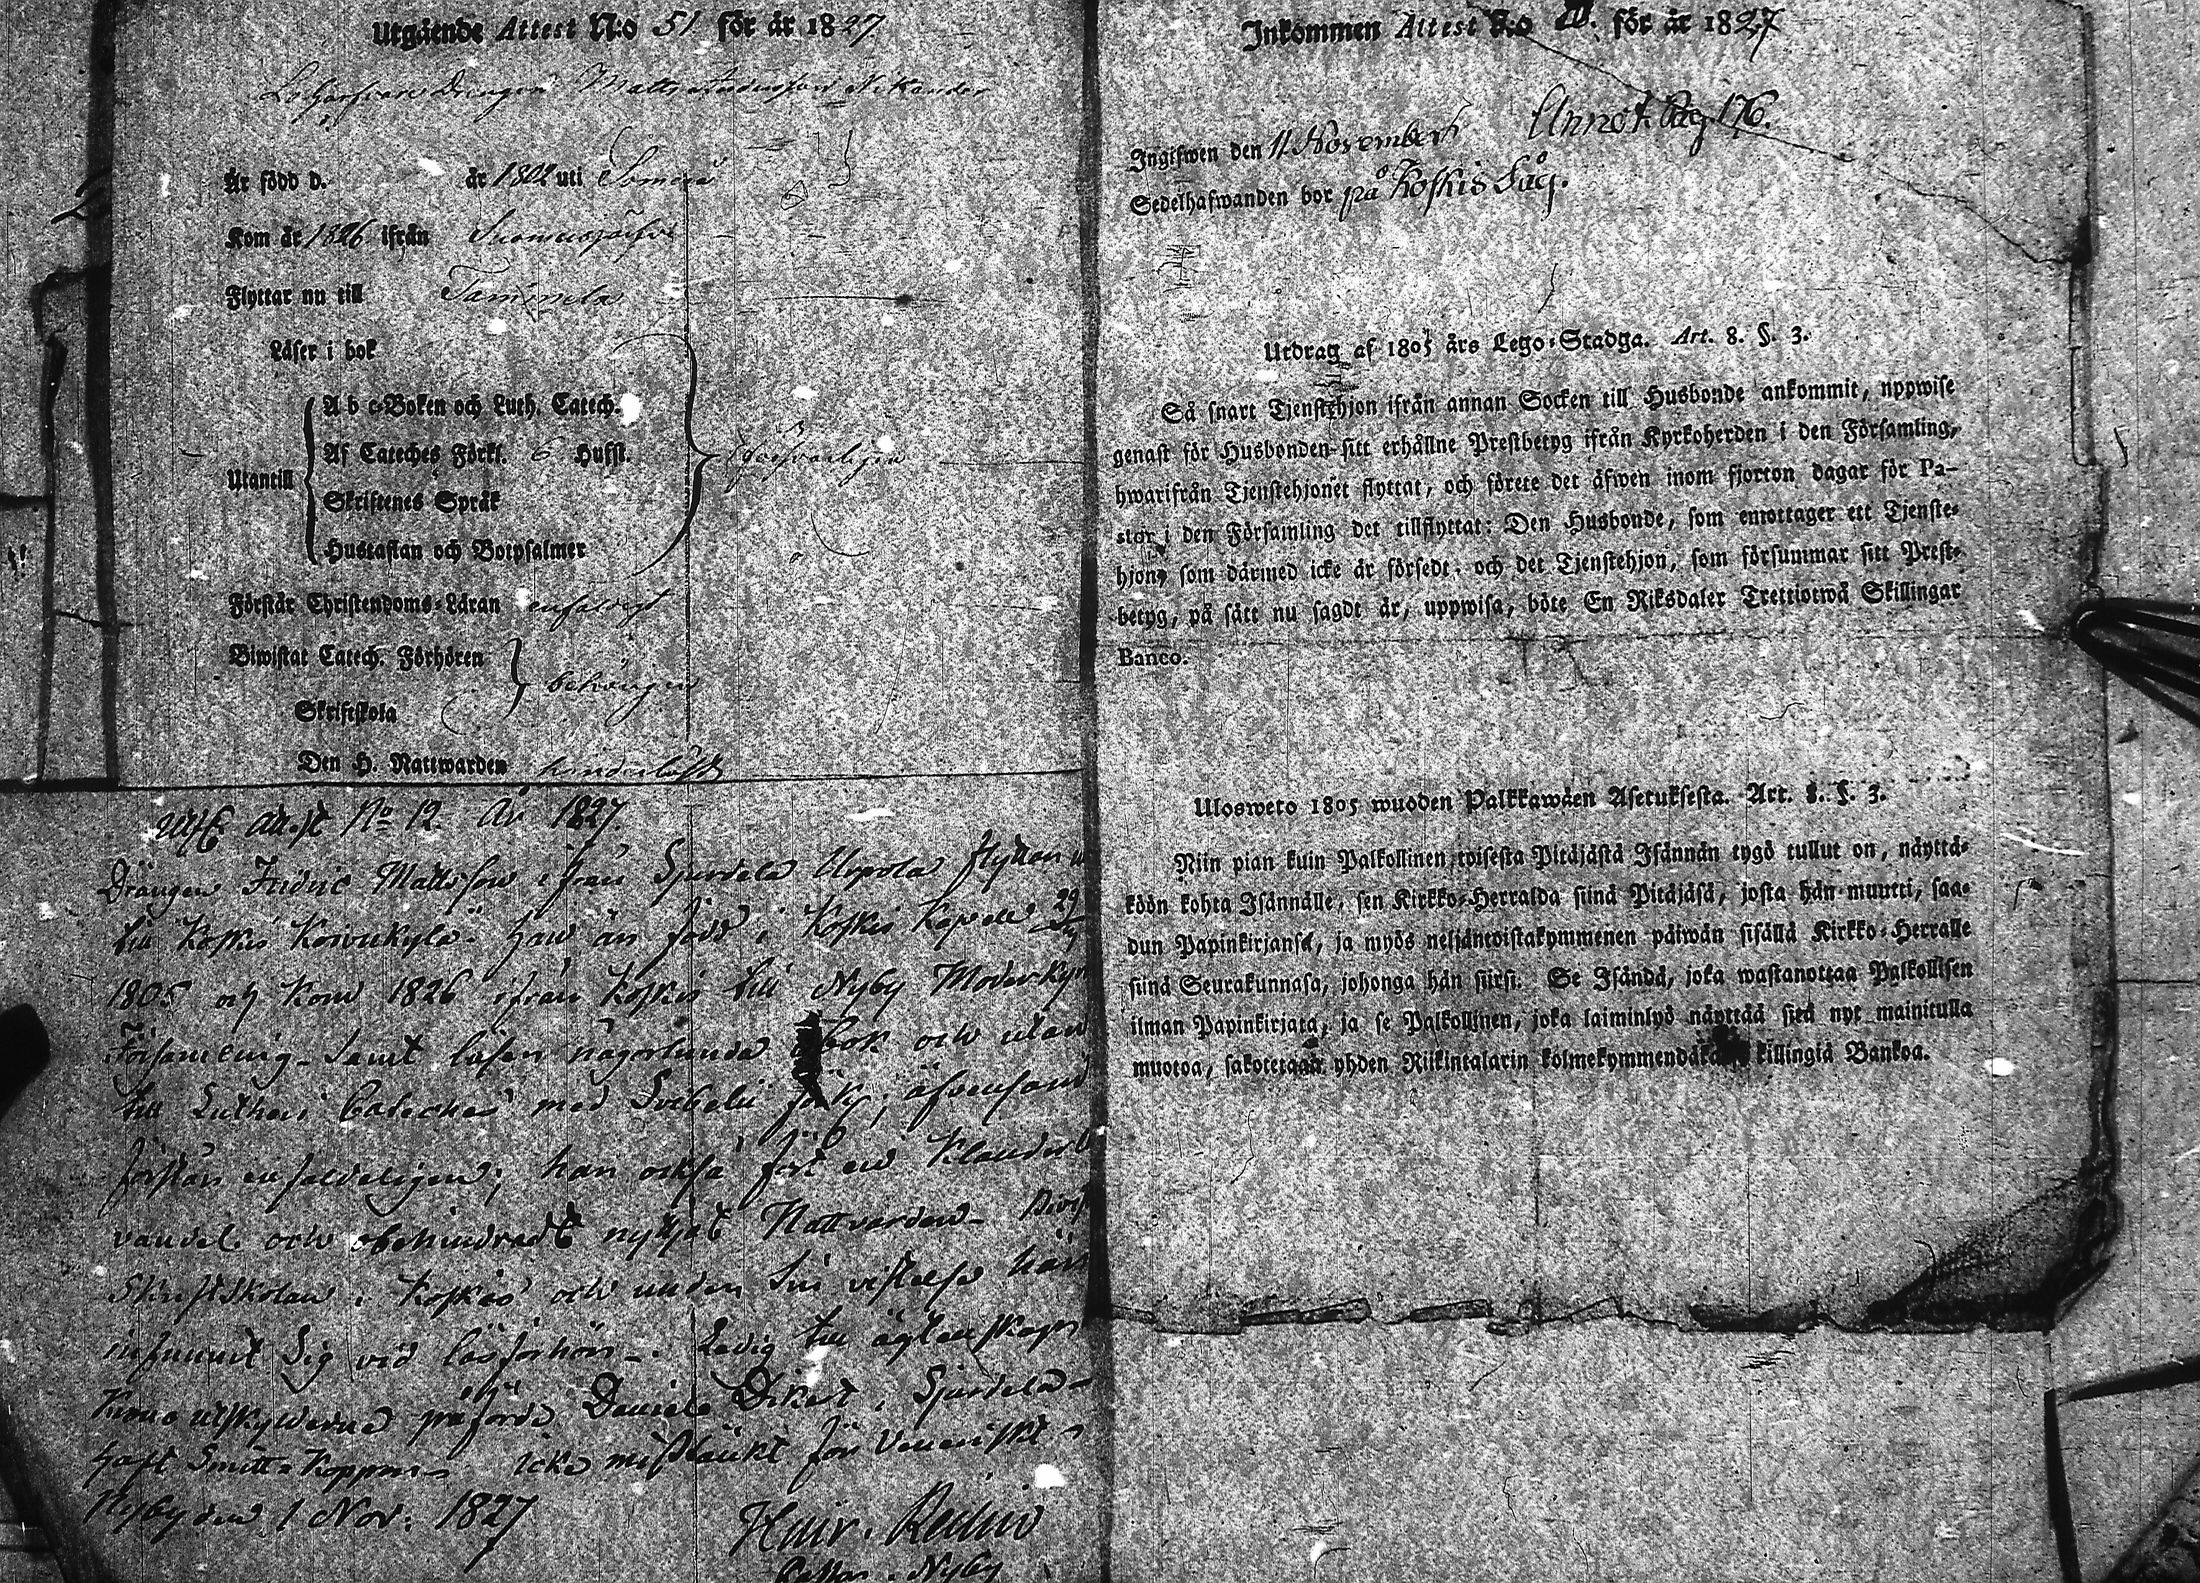 Utgående Attest N:o 51 för år 1827
Drengen Matts Andersson Nikander
Är född d. år 1802 uti Somero
Kom år 1826 ifrån Suomusjärfvi
Flyttar nu till Tammela
Läser i bok
A b c-Boken och Luth. Catech.
Af Cateches Förkl. 6 Hufst.
Utantill
försvarligen
Skriftenes Språk
Hustaflan och Botpsalmer
Förstår Christendoms-Läran enfaldigt
Biwistat Catech. Förhören
behörigen
Skriftskola
Den H. Nattwarden
Attest No 12 År 1827.
Drängen Fridric Mattsson ifrån Sjurdela Uspola flyttar
till Koskis Koivukylä. Han är född i Koskis Kapell 29
1805 och kom 1826 ifrån Koskis till Nyby Moderkyr
Församling - samt läser någorlunda i bok och utan
till Lutheri Cateches med Svebelii ; äfvensom
förstår enfaldeligen; han också fört en Klander
vandel och obehindradt nyttjat Nattvarden -
Skriftskolan i Koskis och under sin vistelse här
infunnit Sig vid läsförhör -. Ledig till ägtenskap
Krono utskylderne påförde Daniels i Sjurdela -
haft Smittkoppor - icke misstänkt för Venerisk
Nyby den 1 Nov. 1827
Henr.
Nyby
Inkommen Attest N:o för år 1827
Annot. Pag 176.
Ingifwen den 11 November
Sedelhafwanden bor på Koskis Såg.
Utdrag af 1805 års Lego-Stadga. Art. 8. §. 3.
Så snart Tjenstehjon ifrån annan Socken till Husbonde ankommit, uppwise
genast för Husbonden sitt erhållne Prestbetyg ifrån Kyrkoherden i den Församling,
hwarifrån Tjenstehjonet flyttat, och förete det äfwen inom fjorton dagar för Pa-
stor i den Församling det tillflyttat: Den Husbonde, som emottager ett Tjenste-
hjon, som därmed icke är försedt, och det Tjenstehjon, som försummar sitt Prest-
betyg, på sätt nu sagdt är, uppwisa, böte En Riksdaler Trettiotwå Skillingar
Banco.
Ulosweto 1805 wuoden Palkkawäen Asetuksesta. Art. 8. §. 3.
Niin pian kuin Palkollinen toisesta Pitäjästä Isännän tygö tullut on, näyttä-
köön kohta Isännälle, sen Kirkko-Herralda siinä Pitäjäsä, josta hän muutti, saa-
dun Papinkirjansa, ja myös neljäntoistakymmenen päiwän sisällä Kirkko-Herralle
siinä Seurakunnasa, johonga hän siirsi. Se Isändä, joka wastanottaa Palkollisen
ilman Papinkirjata, ja se Palkollinen, joka laiminlyö näyttää sitä nyt mainitulla
muotoa, sakotetaan yhden Riikintalarin kolmekymmendäkaksi killingiä Bankoa.